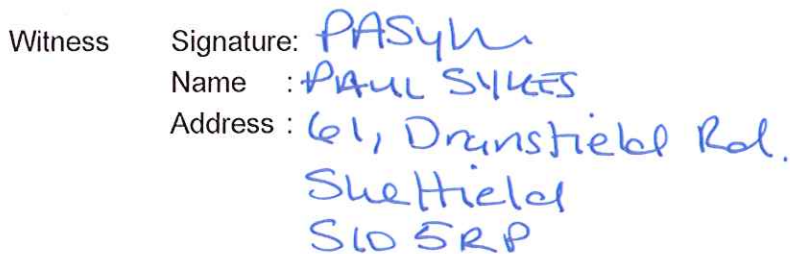 Witness Signature: PASyk
Name : PAUL SYKES
Address : 61, Dransfield Rd.
Sheffield
S10 5RP